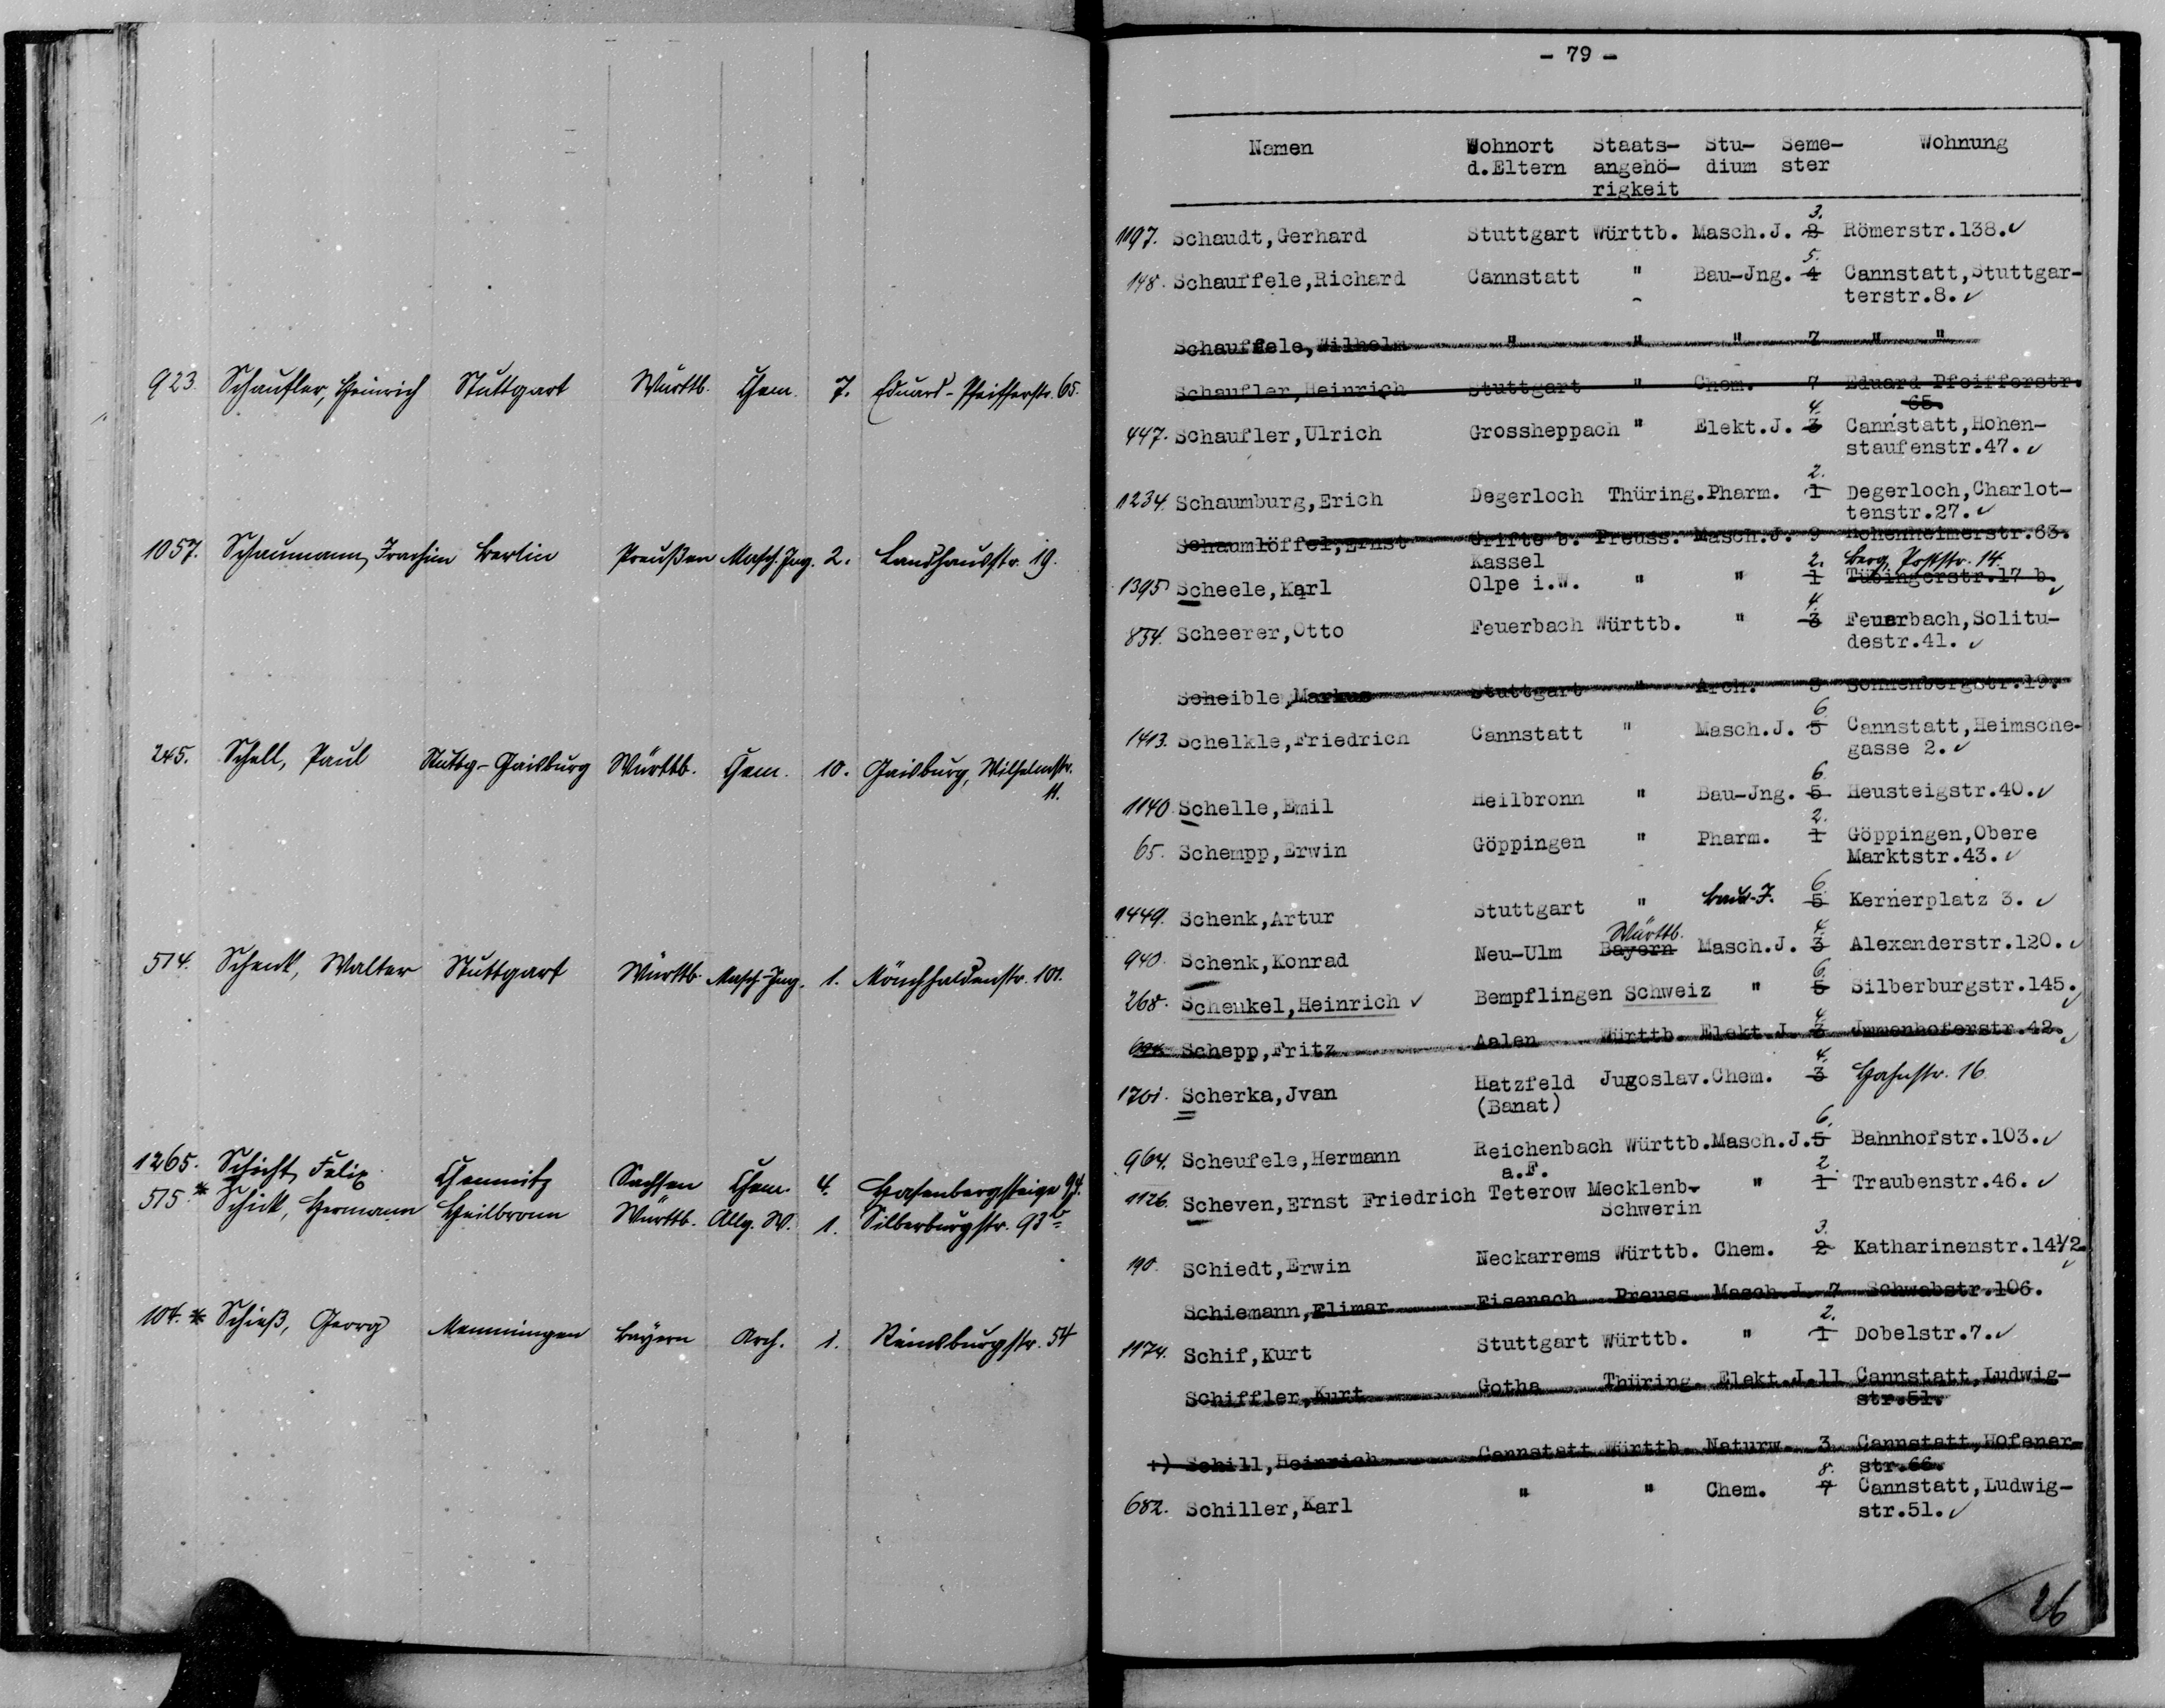 923. Schaufler, Heinrich Stuttgart Württb. Chem. 7. Eduard-Pfeifferstr. 65.
1057. Schaumann, Joachim Berlin Preußen Masch. Ing. 2. Landhausstr. 19.
245. Schell, Paul Stuttg.-Gaisburg Württb. Chem. 10. Gaisburg, Wilhelmstr.
11.
514. Schenk, Walter Stuttgart Württb. Masch-Ing. 1. Mönchhaldenstr. 101.
1265. Schicht, Felix Chemnitz Sachsen Chem. 4. Hasenbergsteige 94.
515.* Schick, Hermann Heilbronn Württb. Allg. W. 1. Silberburgstr. 93b
104.* Schieß, Georg Memmingen Bayern Arch. 1. Reinsburgstr. 54
- 79 -
Namen Wohnort Staats- Stu- Seme- Wohnung
d.Eltern angehö- dium ster
rigkeit
3.
1197. Schaudt,Gerhard Stuttgart Württb. Masch.J. 2 Römerstr.138.
5.
148. Schauffele,Richard Cannstatt " Bau-Jng. 4 Cannstatt,Stuttgar-
terstr.8.
Schauffele,Wilhelm " " " 7 " "
Schaufler,Heinrich Stuttgart " Chem. 7 Eduard Pfeifferstr.
65.
4.
447. Schaufler,Ulrich Grossheppach " Elekt.J. 3 Cannstatt,Hohen-
staufenstr.47.
2.
1234. Schaumburg,Erich Degerloch Thüring.Pharm. 1 Degerloch,Charlot-
tenstr.27.
Schaumlöffel,Ernst Grifte b. Preuss. Masch.J. 9 Hohenheimerstr.63.
Kassel
2. Berg, Poststr. 14.
1395 Scheele,Karl Olpe i.W. " " 1 Tübingerstr.17 b.
4.
854. Scheerer,Otto Feuerbach Württb. " 3 Feuerbach,Solitu-
destr.41.
Scheible,Markus Stuttgart " Arch. 3 Sonnenbergstr.19.
6.
1413. Schelkle,Friedrich Cannstatt " Masch.J. 5 Cannstatt,Heimsche-
gasse 2.
6.
1140 Schelle,Emil Heilbronn " Bau-Jng. 5 Heusteigstr.40.
2.
65. Schempp,Erwin Göppingen " Pharm. 1 Göppingen,Obere
Marktstr.43.
6.
1449. Schenk,Artur Stuttgart " Bau-J. 5 Kernerplatz 3.
Württb. 4.
940. Schenk,Konrad Neu-Ulm Bayern Masch.J. 3 Alexanderstr.120.
6.
268. Schenkel,Heinrich Bempflingen Schweiz " 5 Silberburgstr.145.
4.
Schepp,Fritz Aalen Württb. Elekt.J. 3 Jmmenhoferstr.42.
4.
1701. Scherka,Jvan Hatzfeld Jugoslav.Chem. 3 Hahnstr. 16.
(Banat)
6.
964. Scheufele,Hermann Reichenbach Württb.Masch.J.5 Bahnhofstr.103.
a.F.
2.
1126. Scheven,Ernst Friedrich Teterow Mecklenb- " 1 Traubenstr.46.
Schwerin
3.
190. Schiedt,Erwin Neckarrems Württb. Chem. 2 Katharinenstr.14½.
Schiemann,Elimar Eisenach Preuss. Masch.J. 7 Schwabstr.106.
2.
1174. Schif,Kurt Stuttgart Württb. " 1 Dobelstr.7.
Schiffler,Kurt Gotha Thüring. Elekt.J.11 Cannstatt,Ludwig-
str.51.
+) Schill,Heinrich Cannstatt Württb. Naturw. 3 Cannstatt,Hofener-
str.66.
8.
682. Schiller,Karl " " Chem. 7 Cannstatt,Ludwig-
str.51.
26